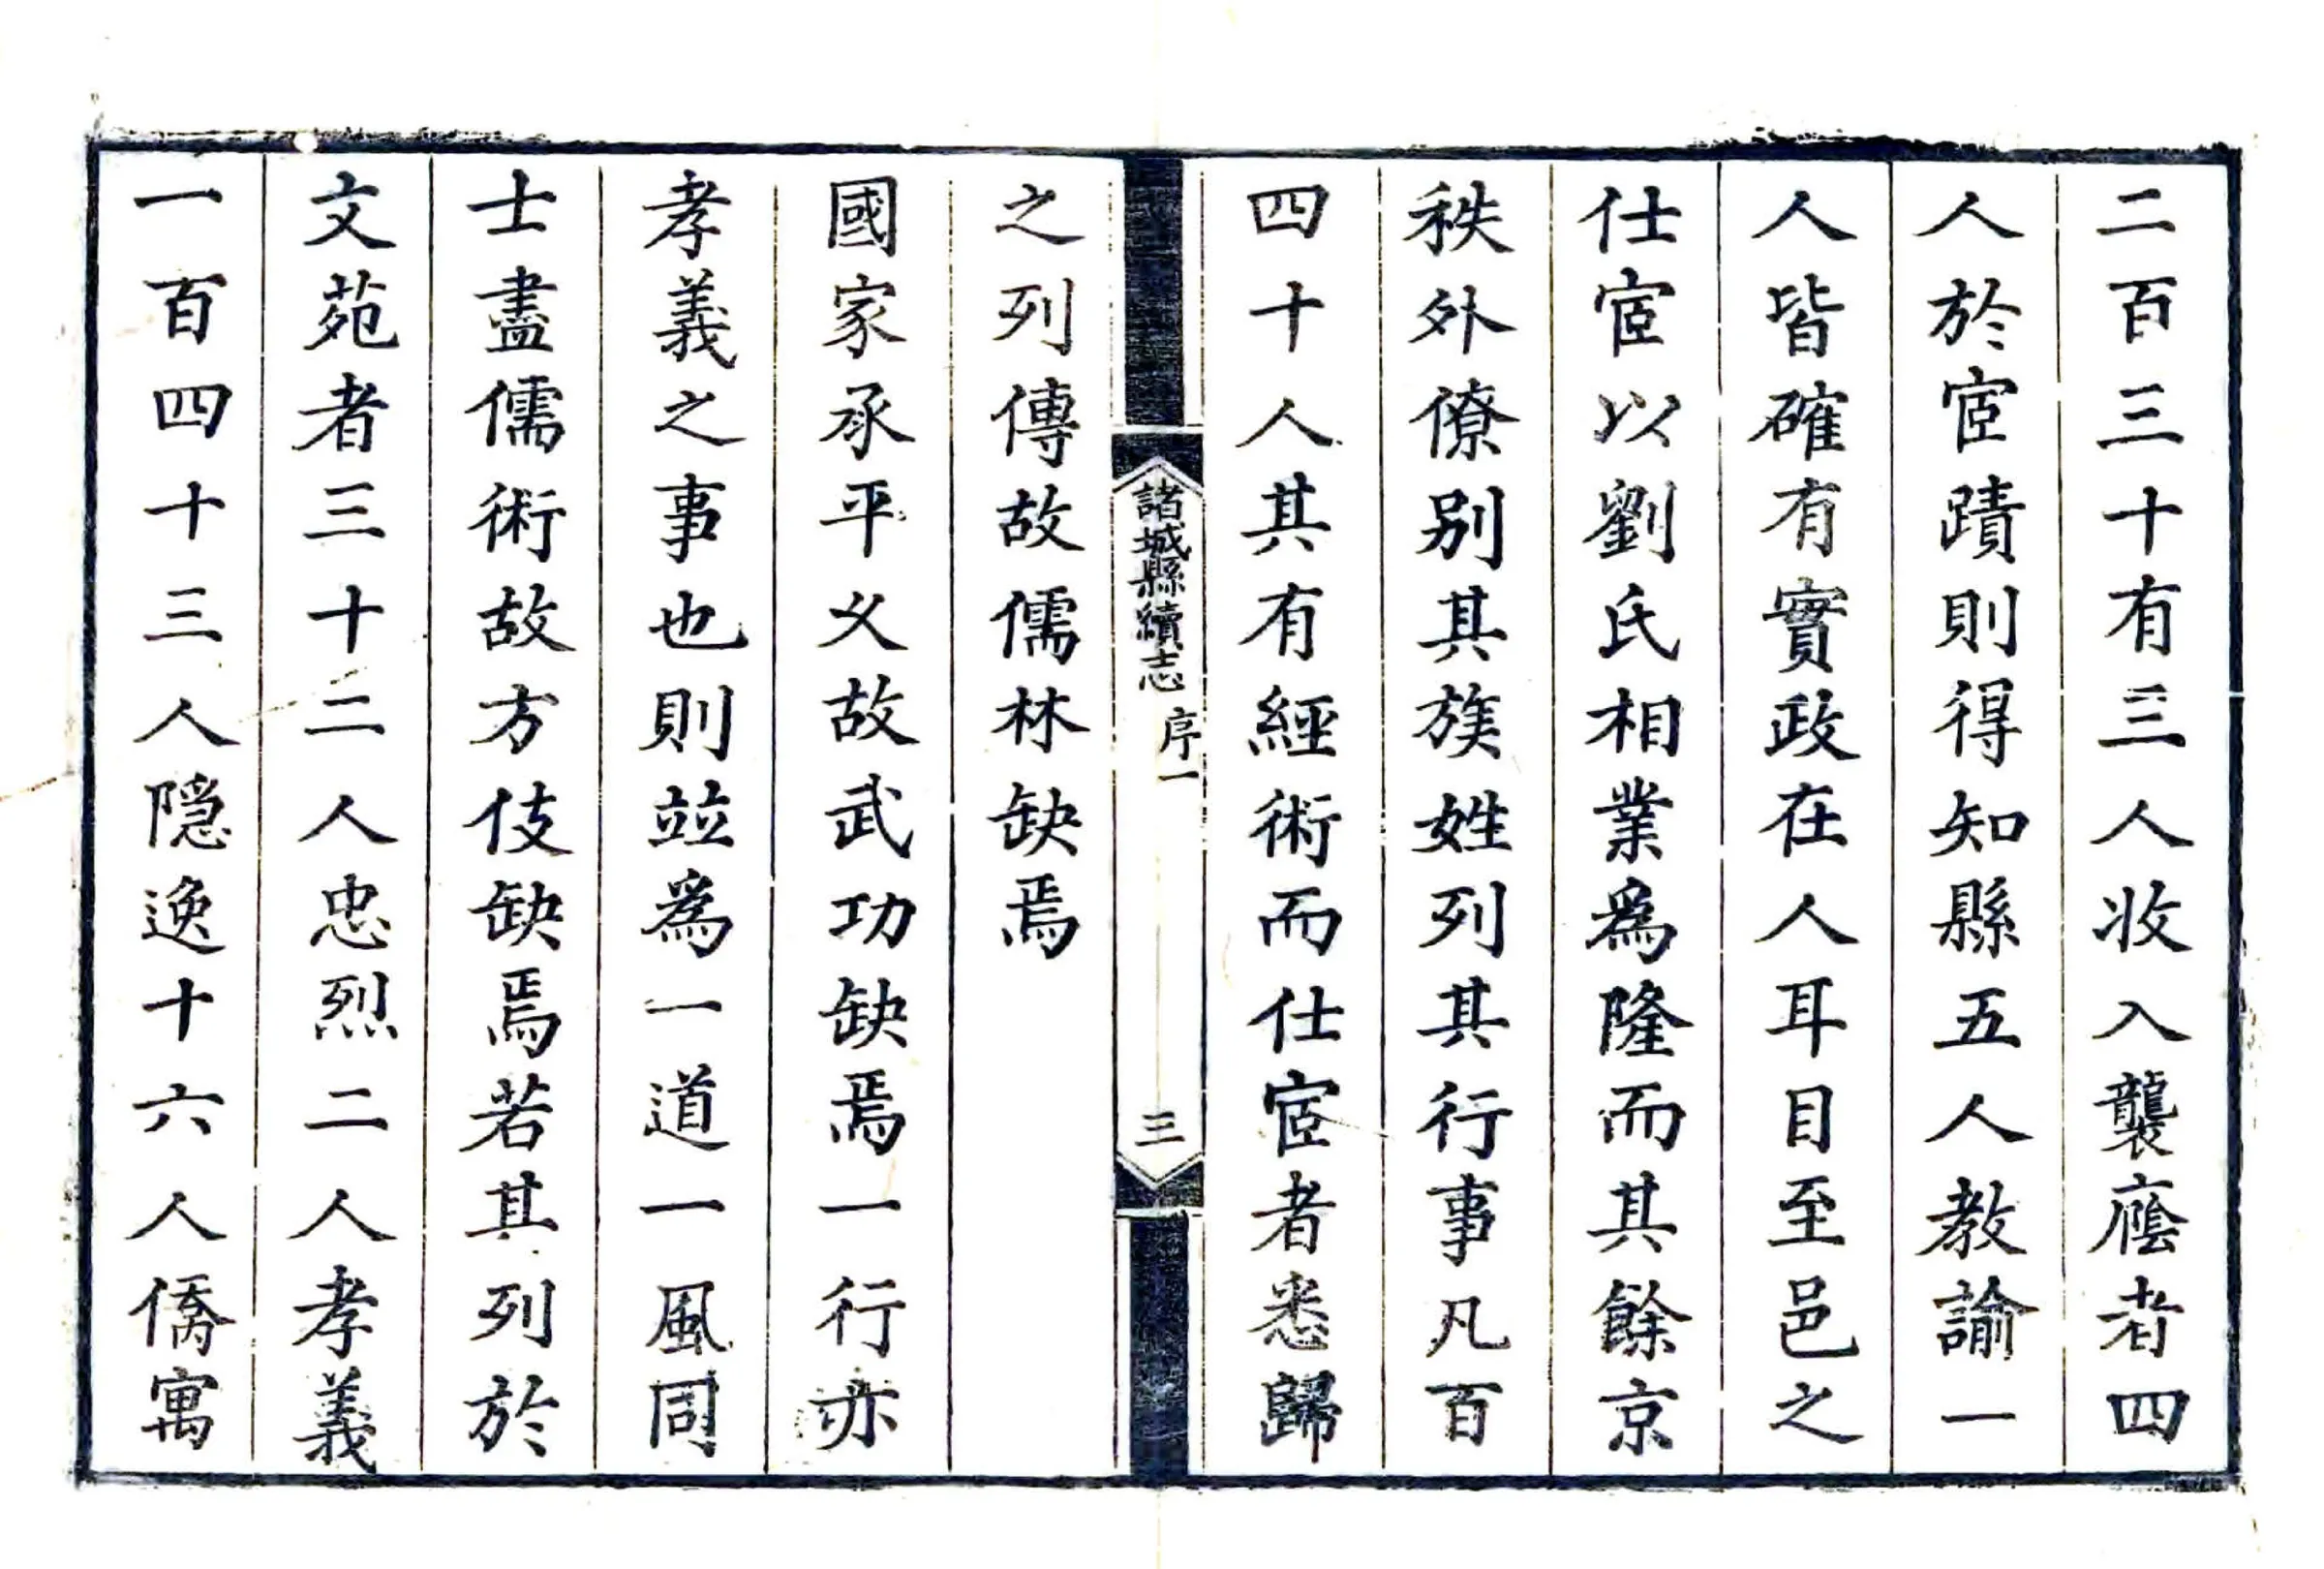 二百三十有三人收入襲廕者四
人於宦蹟則得知縣五人教諭一
人皆確有實政在人耳目至邑之
仕宦以劉氏相業爲隆而其餘京
秩外僚别其族姓列其行事凡百
四十人其有經術而仕宦者悉歸
諸城縣續志 序一 三
之列傳故儒林缺焉
國家承平乆故武功缺焉一行亦
孝義之事也則竝爲一道一風同
士盡儒術故方伎缺焉若其列於
文苑者三十二人忠烈二人孝義
一百四十三人隱逸十六人僑寓